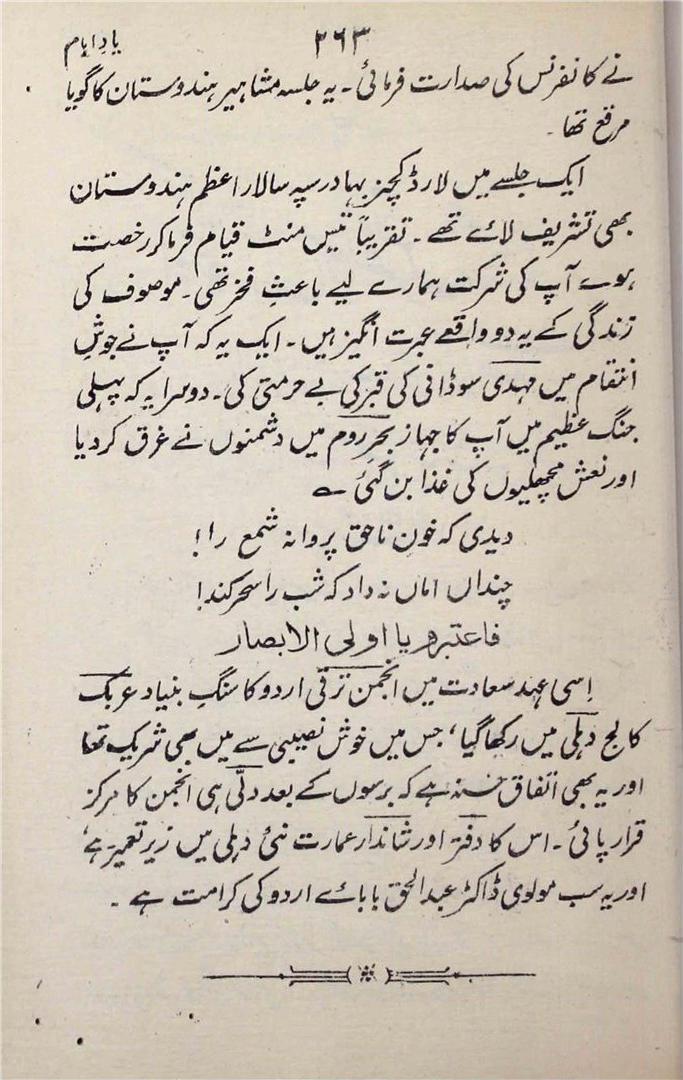 یادِ ایام
۲۶۳
نے کانفرنس کی صدارت فرمائی۔ یہ جلسہ مشاہیر ہندوستان کا گویا
مرقع تھا۔
ایک جلسے میں لارڈ کچنر بہادر سپہ سالار اعظم ہندوستان
بھی تشریف لائے تھے۔ تقریباً تیس منٹ قیام فرما کر رخصت
ہوے آپ کی شرکت ہمارے لیے باعثِ فخر تھی۔ موصوف کی
زندگی کے یہ دو واقعے عبرت انگیز ہیں۔ ایک یہ کہ آپ نے جوشِ
انتقام میں مہدی سوڈانی کی قبر کی بے حرمتی کی۔ دوسرا یہ کہ پہلی
جنگ عظیم میں آپ کا جہاز بحرِ روم میں دشمنوں نے غرق کر دیا
اور نعش مچھلیوں کی غذا بن گئی ؎
دیدی کہ خون ناحق پروانہ شمع را!
چنداں اماں نہ داد کہ شب را سحر کند!
فاعتبرو یا اولی الابصار
اِسی عہد سعادت میں انجمن ترقی اردو کا سنگِ بنیاد عربک
کالج دہلی میں رکھا گیا، جس میں خوش نصیبی سے میں بھی شریک تھا
اور یہ بھی اتفاق حسنہ ہے کہ برسوں کے بعد دلّی ہی انجمن کا مرکز
قرار پائی۔ اس کا دفتر اور شاندار عمارت نئی دہلی میں زیر تعمیر ہے،
اور یہ سب مولوی ڈاکٹر عبدالحق بابائے اردو کی کرامت ہے۔